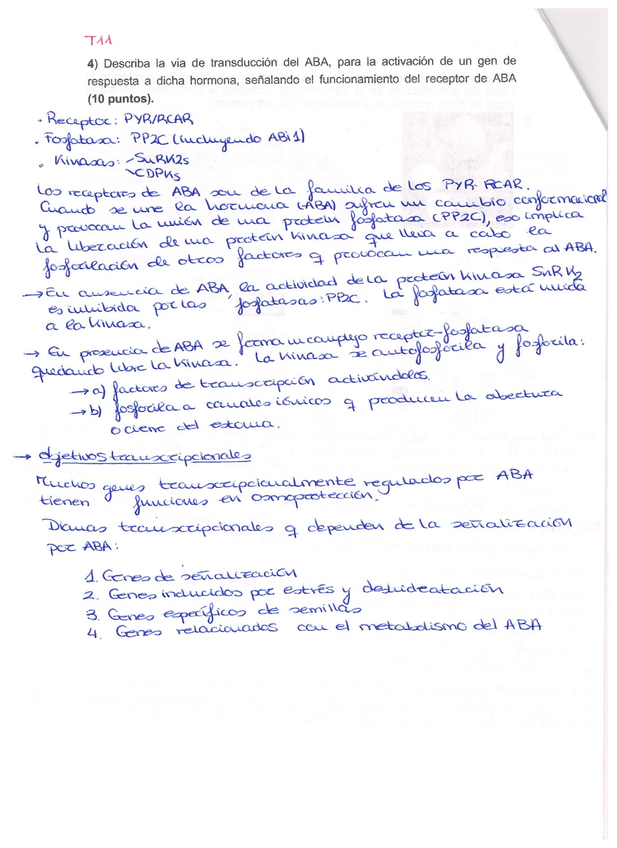 T11
4) Describa la via de transducción del ABA, para la activación de un gen de
respuesta a dicha hormona, señalando el funcionamiento del receptor de ABA
(10 puntos).
· Receptor: PYR/RCAR
· Fosfatasa: PP2C (incluyendo ABi1)
· Kinasas: - SnRK2s
CDPKs
Los receptores de ABA son de la familia de los PYR-RCAR.
Cuando se une la hormona (ABA) sufren un cambio conformacional
y provocan la unión de una protein fosfatasa (PP2C), eso implica
la liberación de una protein kinasa que lleva a cabo la
fosforilación de otros factores q provocan una respuesta al ABA.
→ En ausencia de ABA, la actividad de la protein kinasa SnRK2
es inhibida por las fosfatasas: PP2C. La fosfatasa está unida
a la kinasa.
→ En presencia de ABA se forma un complejo receptor-fosfatasa
quedando libre la kinasa. La kinasa se autofosforila y fosforila:
→ a) factores de transcripción activándolos.
→ b) fosforila a canales iónicos q producen la abertura
o cierre del estoma.
→ Objetivos transcripcionales
Muchos genes transcripcionalmente regulados por ABA
tienen funciones en osmoprotección.
Dianas transcripcionales q dependen de la señalización
por ABA:
1. Genes de señalización
2. Genes inducidos por estrés y deshidratación
3. Genes específicos de semillas
4. Genes relacionados con el metabolismo del ABA